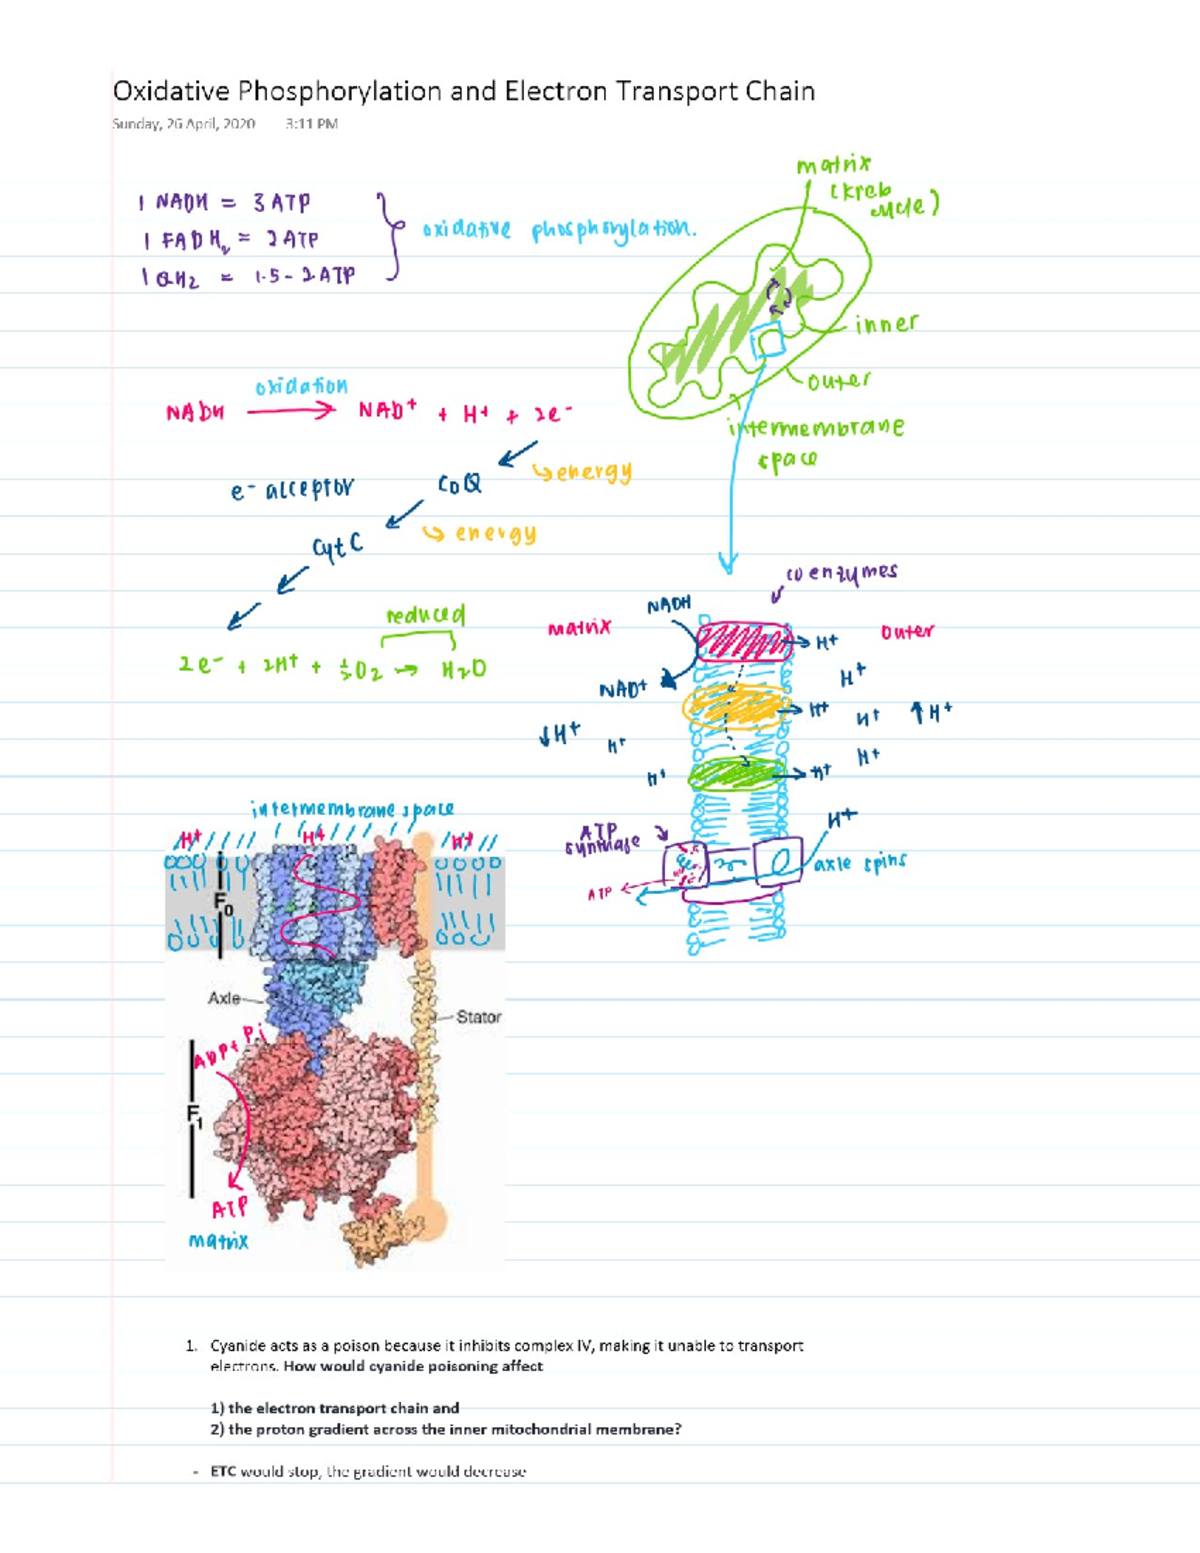 Oxidative Phosphorylation and Electron Transport Chain
Sunday, 26 April, 2020 3:11 PM
1 NADH = 3 ATP
1 FADH₂ = 2 ATP
1 QH₂ = 1.5 - 2 ATP
oxidative phosphorylation.
matrix
(kreb
cycle)
inner
outer
intermembrane
space
oxidation
NADH → NAD⁺ + H⁺ + 2e⁻
↳ energy
e⁻ acceptor
CoQ
↳ energy
Cyt C
reduced
2e⁻ + 2H⁺ + ½O₂ → H₂O
coenzymes
NADH
matrix
H⁺
outer
H⁺
NAD⁺
H⁺
H⁺
↑H⁺
↓H⁺
H⁺
H⁺
H⁺
H⁺
H⁺
ATP
synthase
axle spins
ATP
intermembrane space
H⁺
H⁺
H⁺
F₀
Axle
Stator
ADP + Pi
F₁
ATP
matrix
1. Cyanide acts as a poison because it inhibits complex IV, making it unable to transport
electrons. How would cyanide poisoning affect
1) the electron transport chain and
2) the proton gradient across the inner mitochondrial membrane?
- ETC would stop, the gradient would decrease